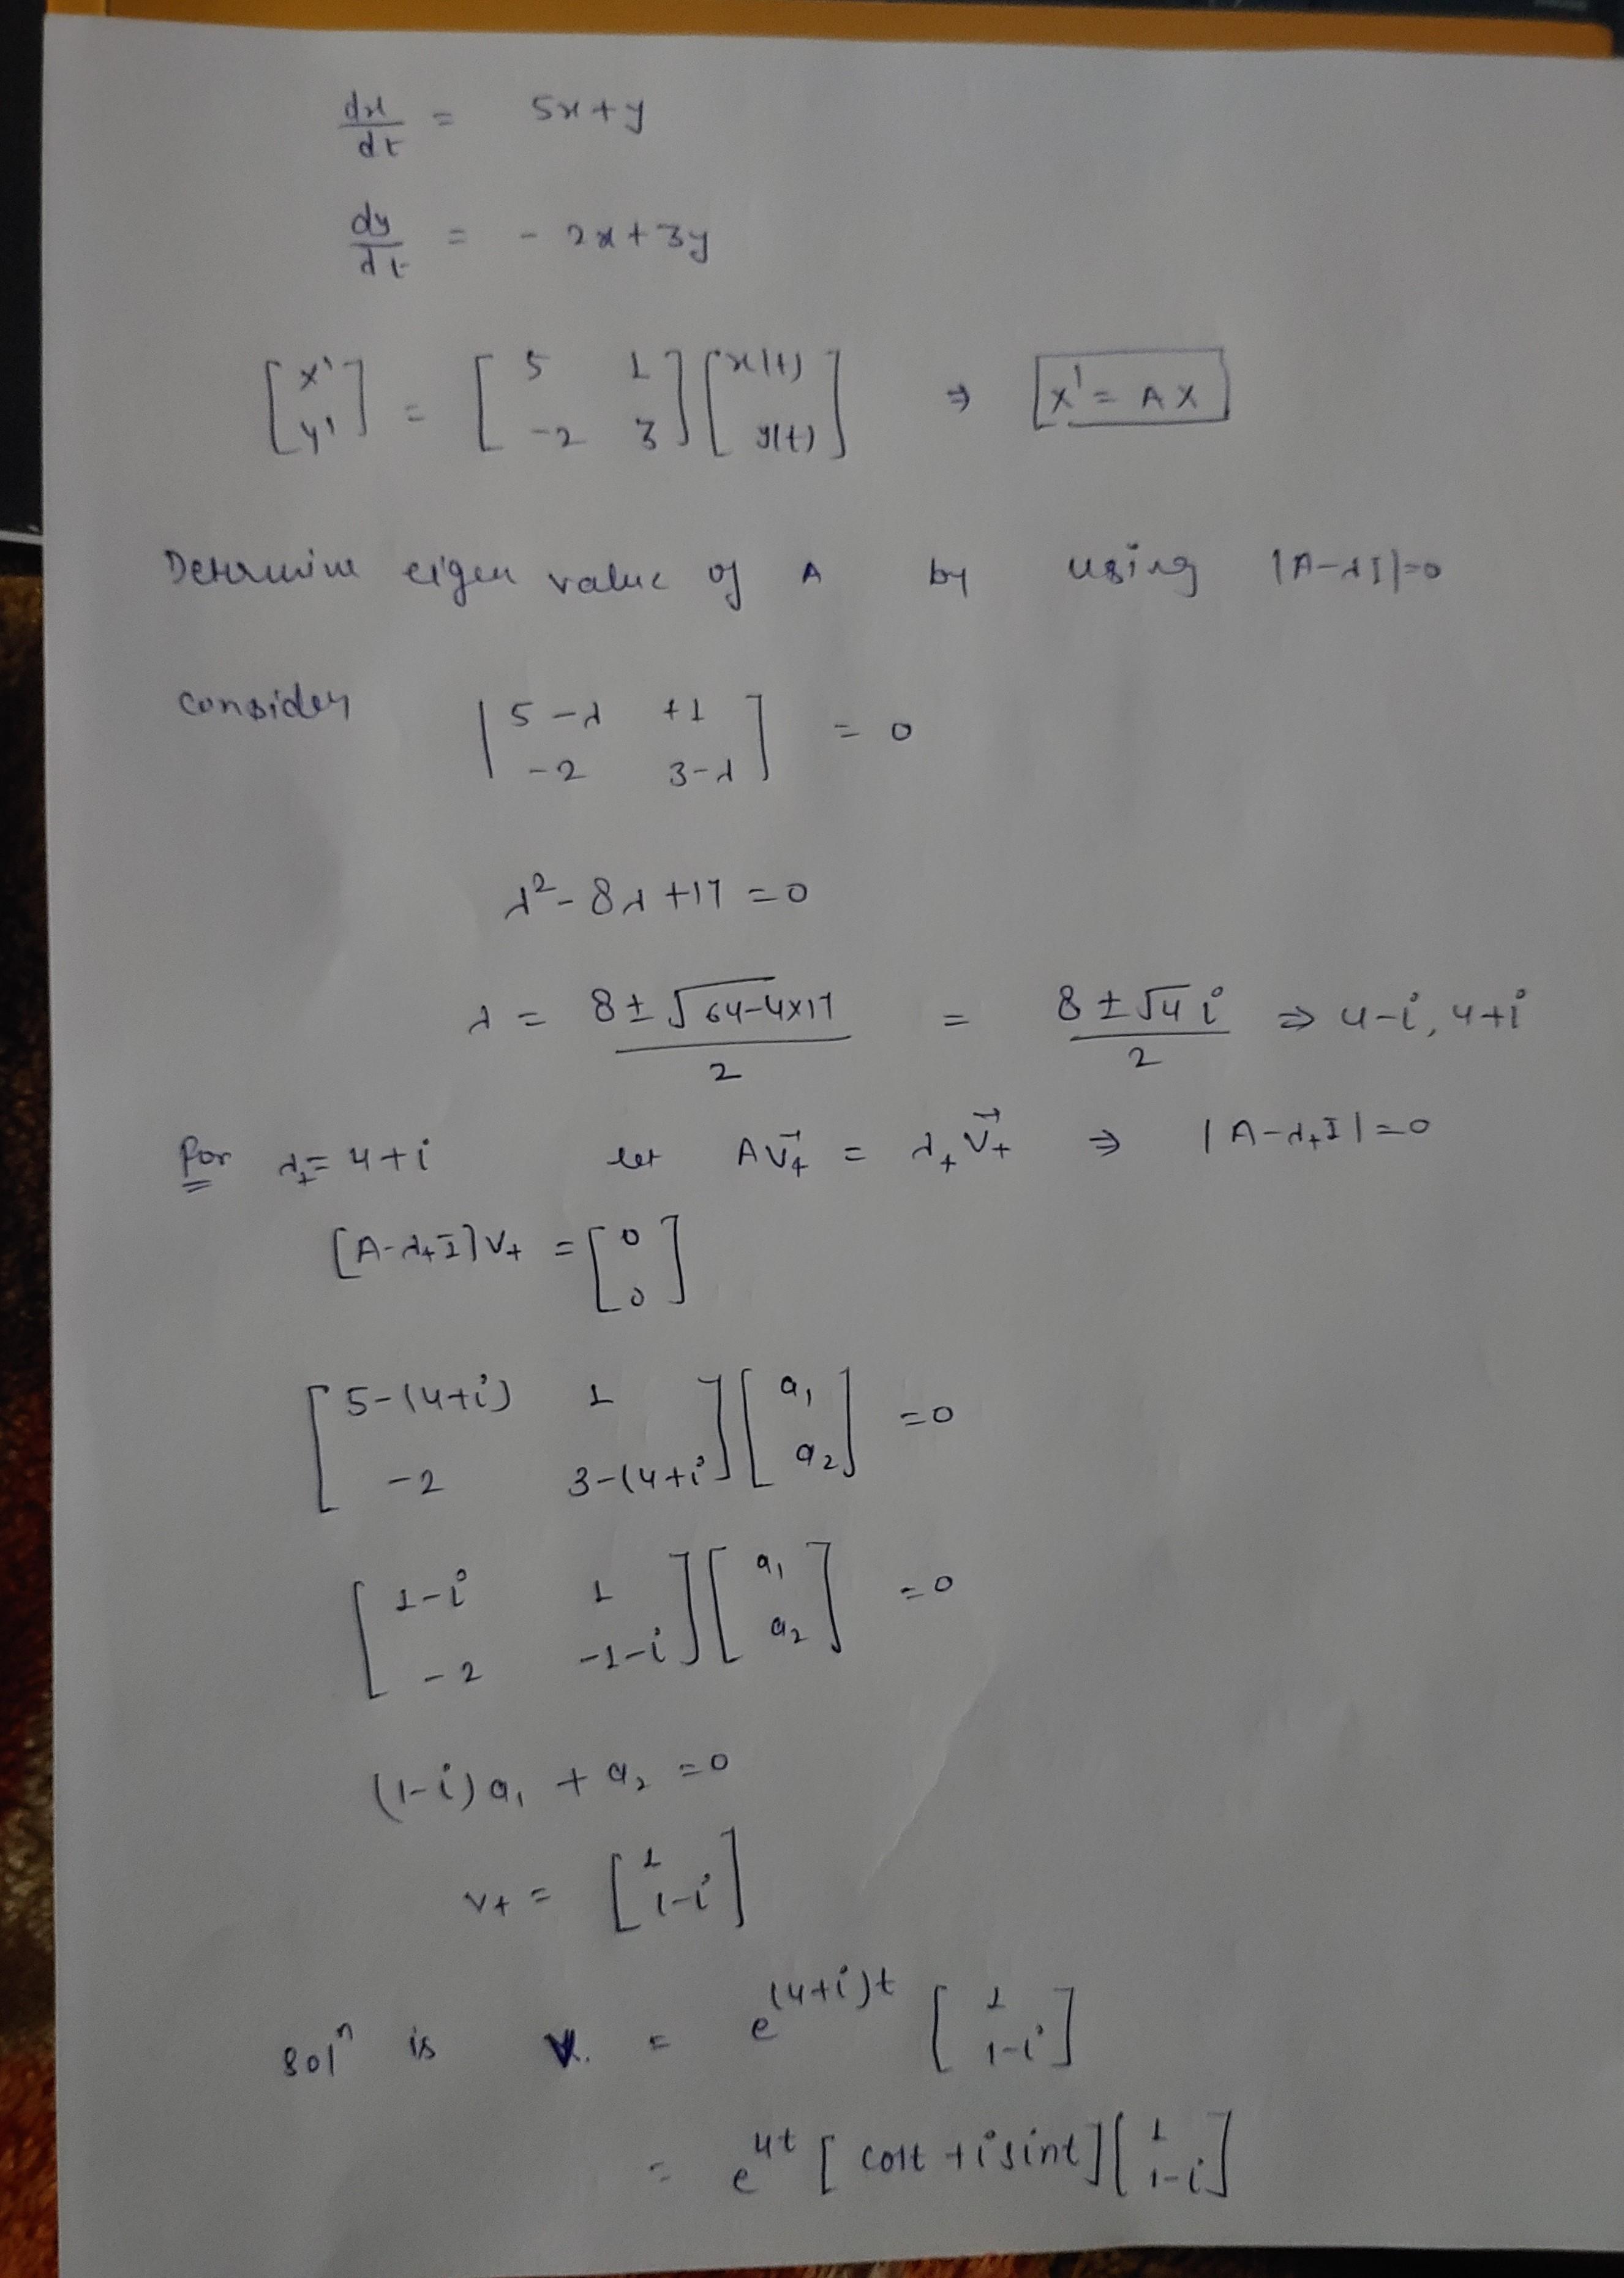 dx/dt = 5x+y
dy/dt = - 2x+3y
[x' y'] = [5 1 -2 3][x(t) y(t)] ⇒ [x' = AX]
Determine eigen value of A by using |A-λI|=0
consider |5-λ +1 -2 3-λ] = 0
λ²-8λ+17 =0
λ = 8±√64-4x17 / 2 = 8±√4 i / 2 ⇒ 4-i, 4+i
for λ₊= 4+i let AV⃗₊ = λ₊V⃗₊ ⇒ |A-λ₊I|=0
[A-λ₊I]V₊ = [0 0]
[5-(4+i) 1 -2 3-(4+i][a₁ a₂] =0
[1-i 1 -2 -1-i][a₁ a₂] =0
(1-i)a₁ + a₂ =0
V₊ = [1 1-i]
solⁿ is V. = e^(4+i)t [1 1-i]
= e^4t [cost +isint][1 1-i]